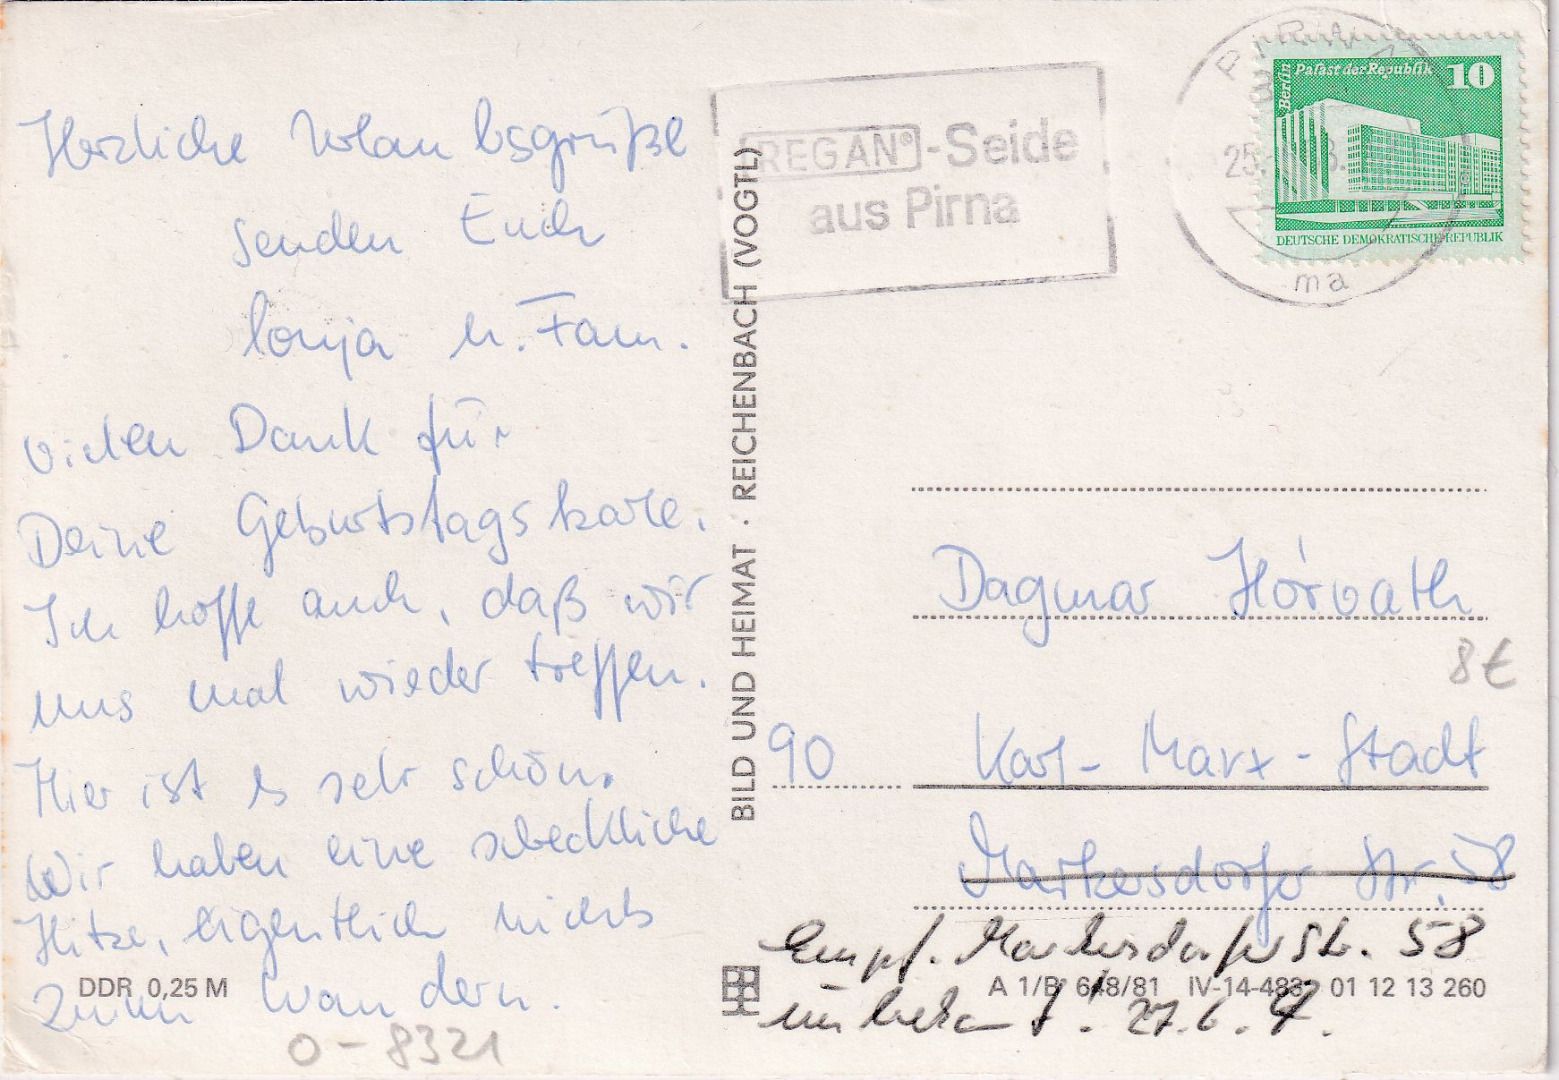 Herzliche Urlaubsgrüße
senden Euch
Sonja u. Fam.
Vielen Dank für
Deine Geburtstagskarte.
Ich hoffe auch, daß wir
uns mal wieder treffen.
Hier ist es sehr schön.
Wir haben eine schreckliche
Hitze, eigentlich nichts
zum wandern.
DDR 0,25 M
O-8321
BILD UND HEIMAT · REICHENBACH (VOGTL)
REGAN®-Seide
aus Pirna
PIRNA
25.
ma
Berlin Palast der Republik 10
DEUTSCHE DEMOKRATISCHE REPUBLIK
Dagmar Hórvath
8 €
90 Karl-Marx-Stadt
Markersdorfer Str. 58
Empf. Markersdorfer Str. 58
unbekannt! 27.6.
A 1/B 648/81 IV-14-483 01 12 13 260